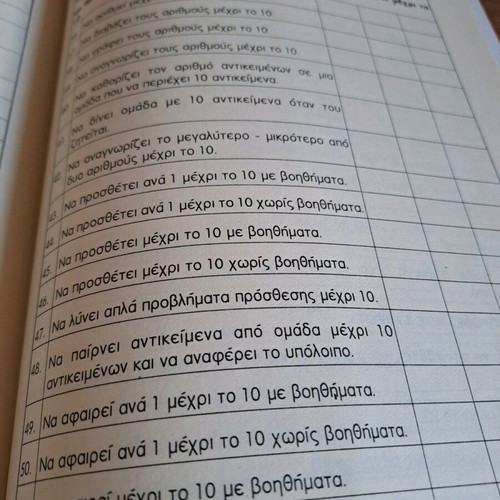 μέχρι το
Να διαβάζει τους αριθμούς μέχρι το 10.
Να γράφει τους αριθμούς μέχρι το 10.
Να αναγνωρίζει τους αριθμούς μέχρι το 10.
Να καθορίζει τον αριθμό αντικειμένων σε μια
ομάδα που να περιέχει 10 αντικείμενα.
Να δίνει ομάδα με 10 αντικείμενα όταν του
ζητείται.
42. Να αναγνωρίζει το μεγαλύτερο - μικρότερο από
δυο αριθμούς μέχρι το 10.
43. Να προσθέτει ανά 1 μέχρι το 10 με βοηθήματα.
44. Να προσθέτει ανά 1 μέχρι το 10 χωρίς βοηθήματα.
45. Να προσθέτει μέχρι το 10 με βοηθήματα.
46. Να προσθέτει μέχρι το 10 χωρίς βοηθήματα.
47. Να λύνει απλά προβλήματα πρόσθεσης μέχρι 10.
48. Να παίρνει αντικείμενα από ομάδα μέχρι 10
αντικειμένων και να αναφέρει το υπόλοιπο.
49. Να αφαιρεί ανά 1 μέχρι το 10 με βοηθήματα.
50. Να αφαιρεί ανά 1 μέχρι το 10 χωρίς βοηθήματα.
μέχρι το 10 με βοηθήματα.